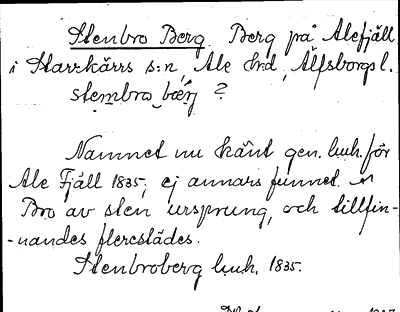 Stenbro Berg. Berg på Alefjäll
i Starrkärrs s:n, Ale hrd, Älfsborgs l.
stembro bærj ?
Namnet nu känt gen. luh. för
Ale Fjäll 1835, ej annars funnet.
Bro av sten ursprung, och tillfin-
-nandes flerestädes.
Stenbroberg luh. 1835.